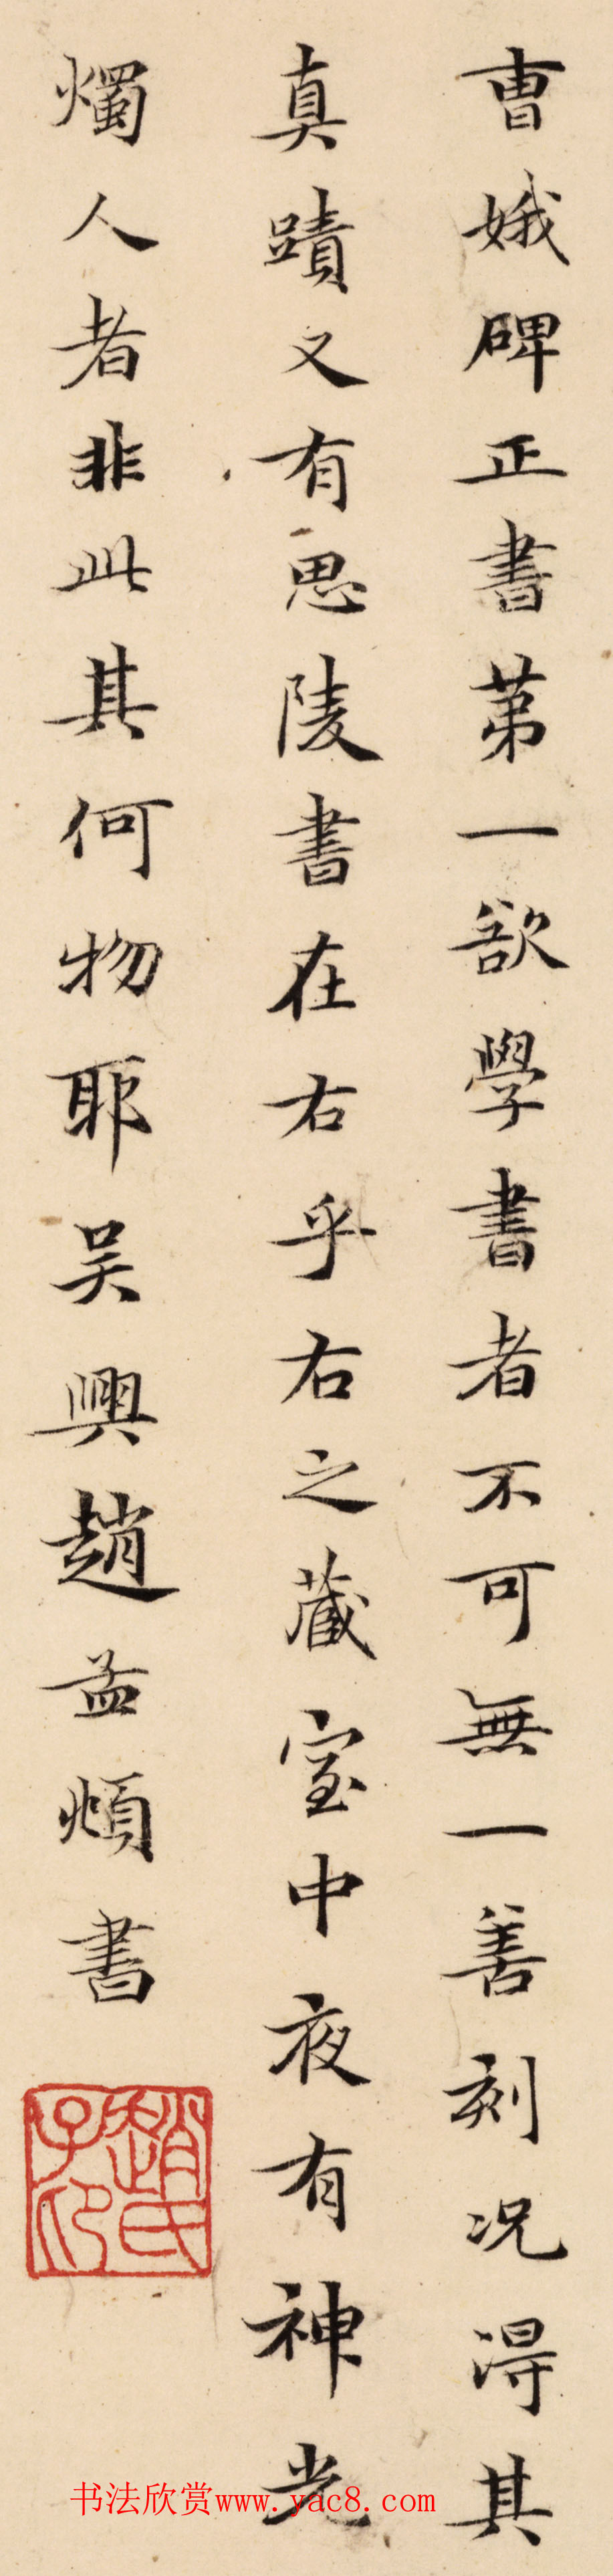 曺娥碑正書第一欲學書者不可無一善刻况得其
真蹟又有思陵書在右乎右之藏室中夜有神光
燭人者非此其何物耶吴興趙孟頫書
趙氏
子印
书法欣赏www.yac8.com